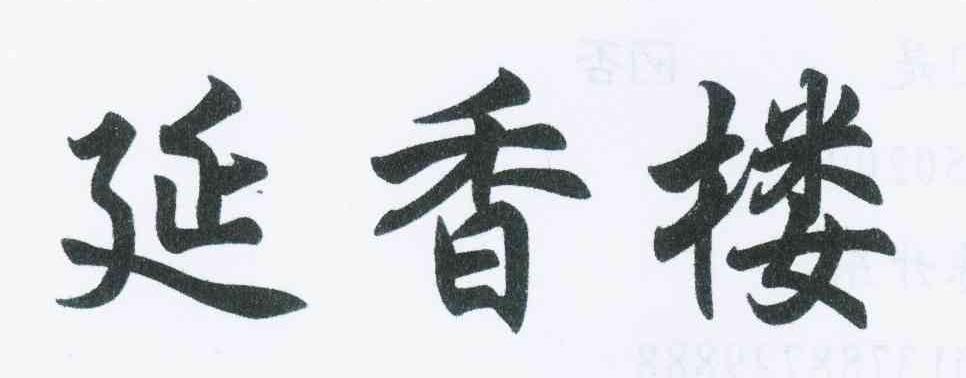 延香楼